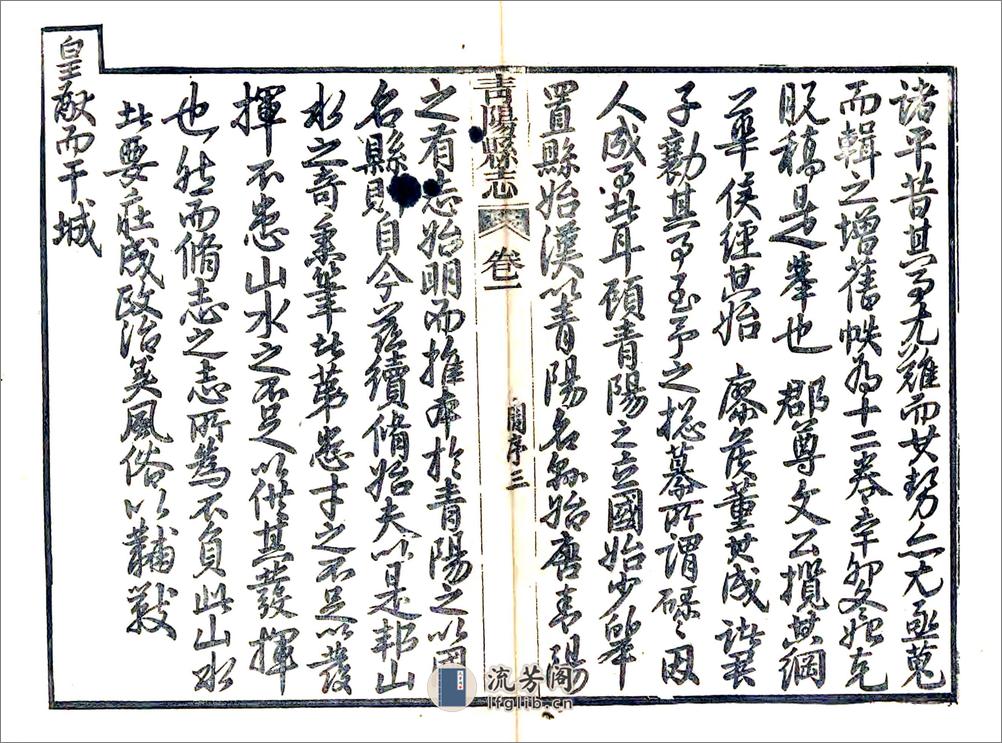 諸平昔其事尤難而女勢亦尤亟蒐
而輯之增舊帙為十二卷辛卯夏始克
脫稿是舉也 郡尊文公攬其綱
華侯經其始 廖侯董其成諸君
子勷其事至予之捴纂所謂碌々因
人成事耳碩青陽之立國始少皞
置縣始漢以青陽名縣始唐青陽
青陽縣志
卷一
周序三
之有志始明而推本於青陽之以國
名縣則自今茲續脩始夫以是邦山
水之奇秉筆者第患才之不足以發
揮不患山水之不足以供其發揮
也然而脩志之志所為不負此山水
者要在成政治美風俗以黼黻
皇猷而干城
流芳阁
lfglib.cn